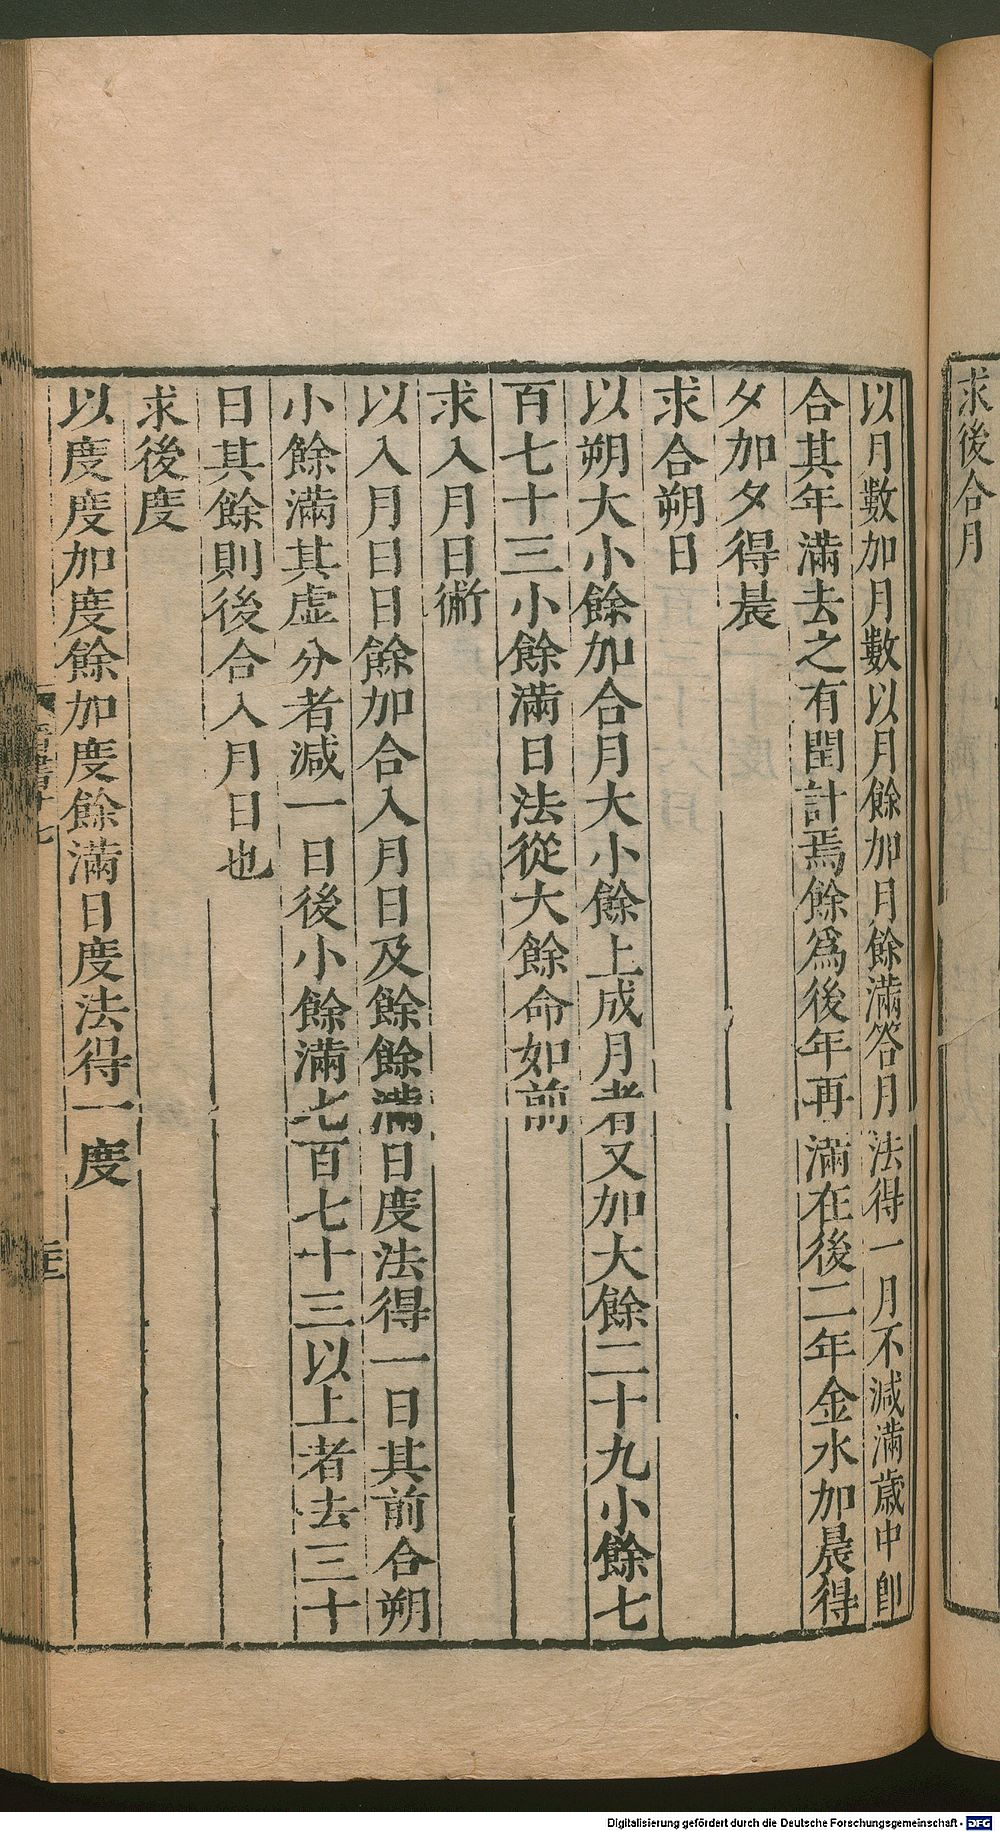 求後合月
以月數加月數以月餘加月餘滿答月法得一月不減滿歲中卽
合其年滿去之有閏計焉餘爲後年再滿在後二年金水加晨得
夕加夕得晨
求合朔日
以朔大小餘加合月大小餘上成月者又加大餘二十九小餘七
百七十三小餘滿日法從大餘命如前
求入月日術
以入月日日餘加合入月日及餘餘滿日度法得一日其前合朔
小餘滿其虛分者減一日後小餘滿七百七十三以上者去三十
日其餘則後合入月日也
求後度
以度度加度餘加度餘滿日度法得一度
Digitalisierung gefördert durch die Deutsche Forschungsgemeinschaft - DFG